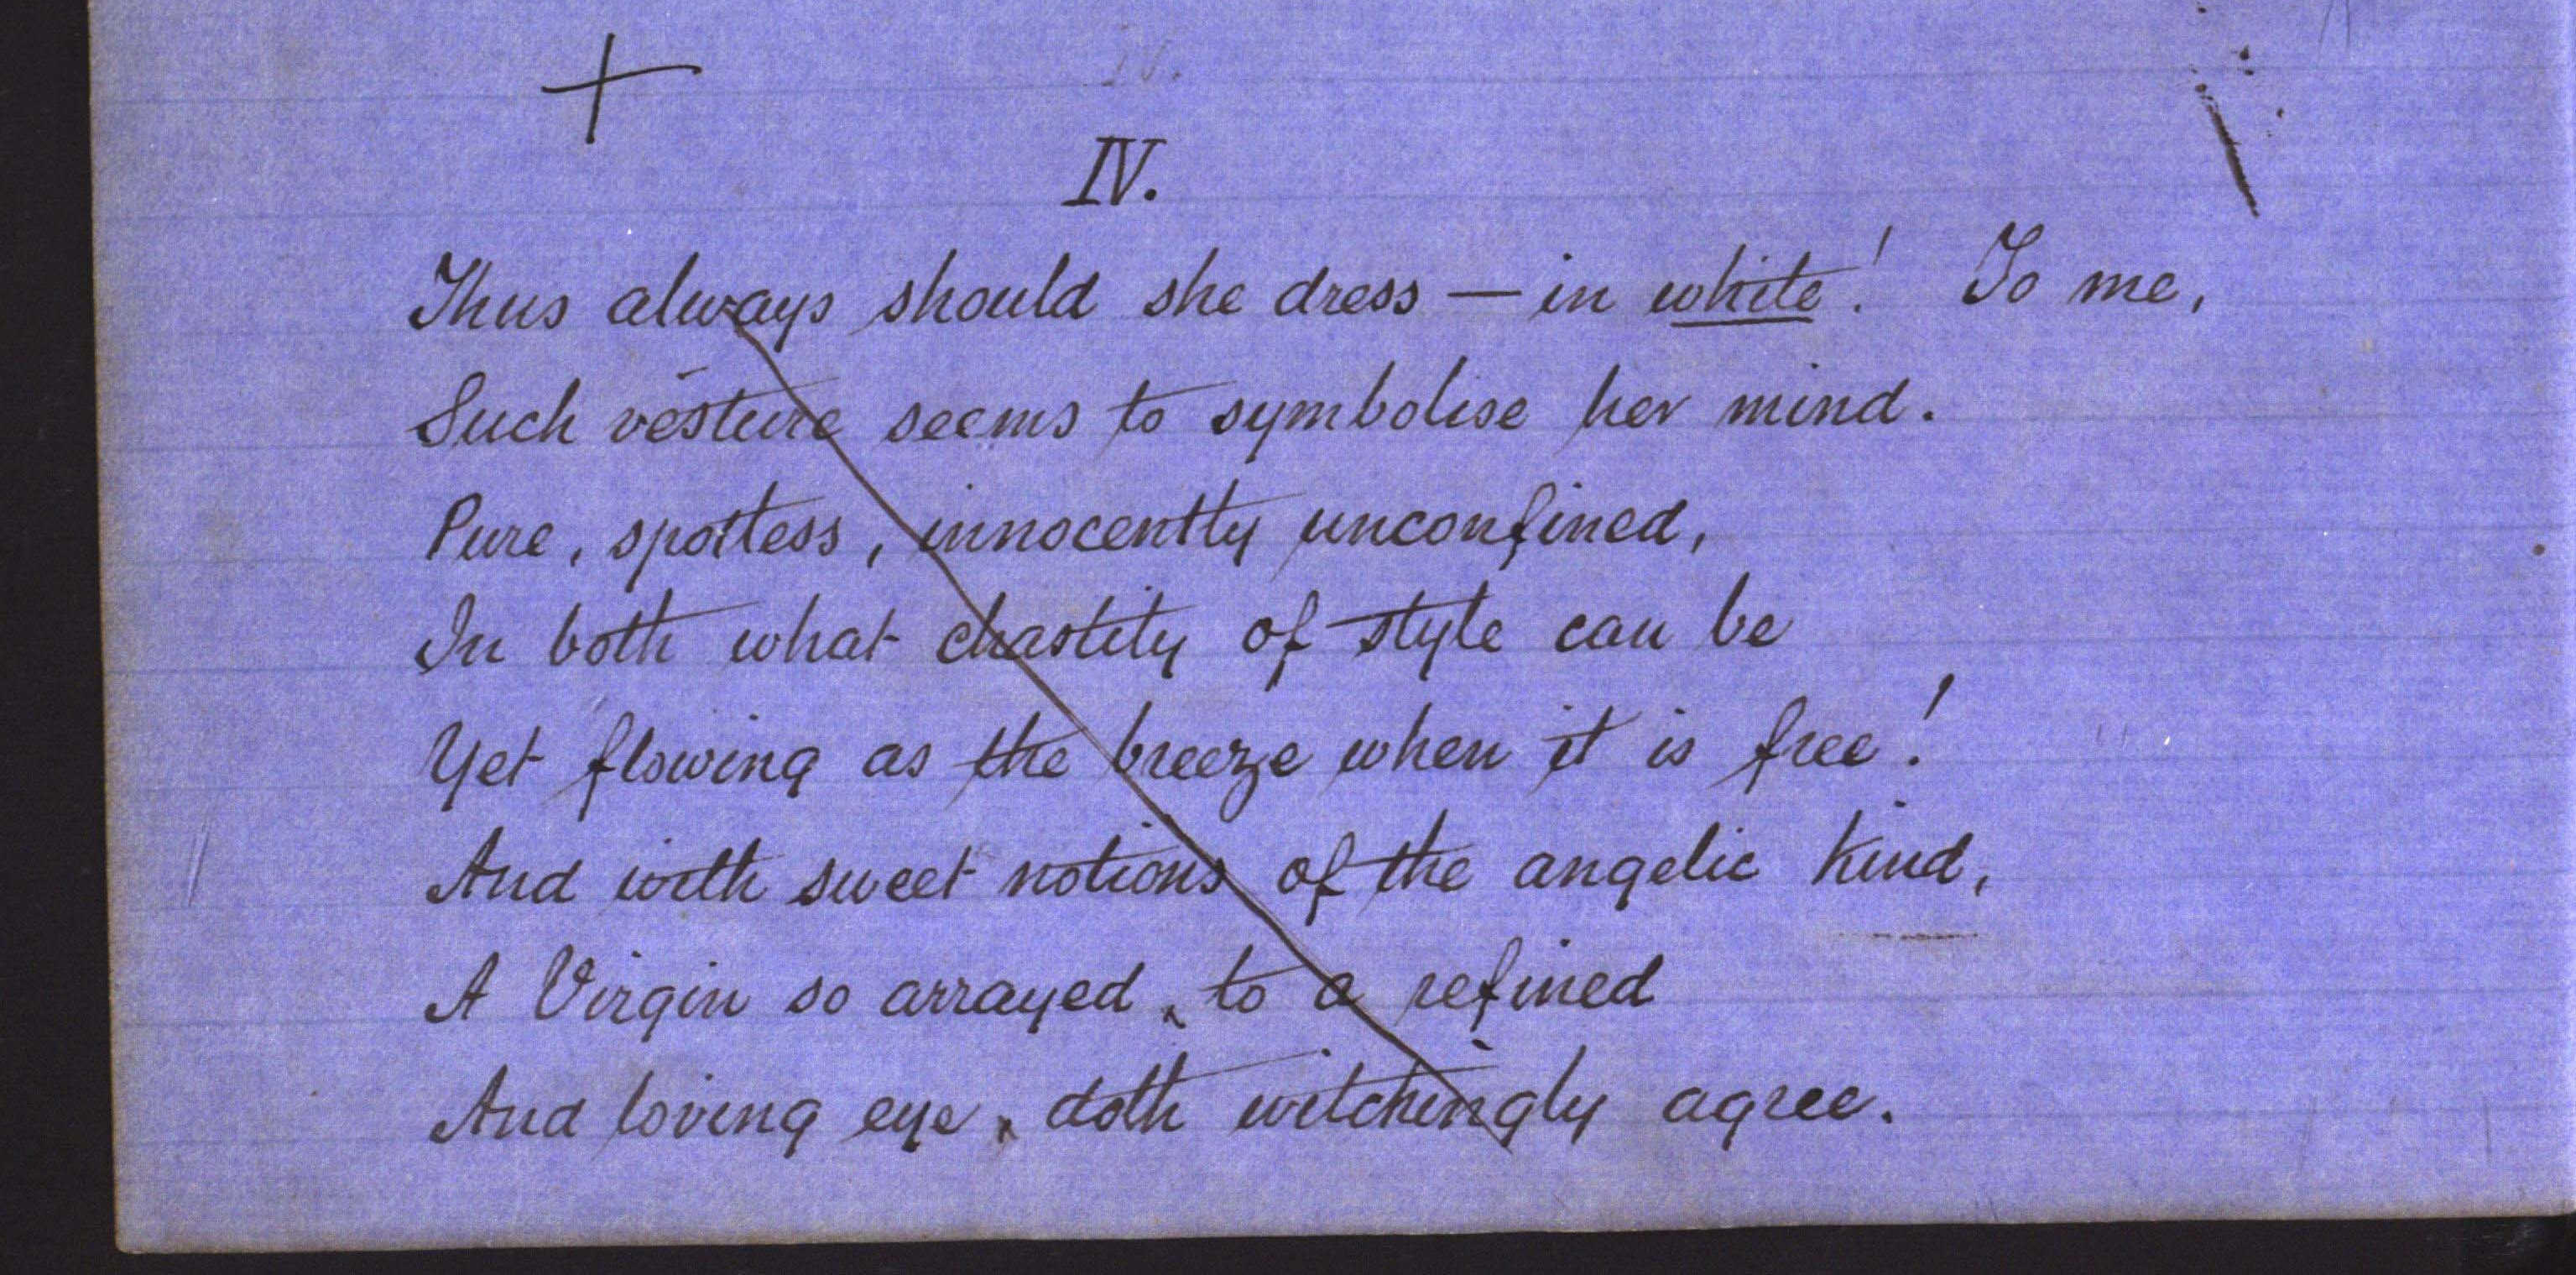 +
IV.
Thus always should she dress — in white! To me,
Such vesture seems to symbolise her mind.
Pure, spotless, innocently unconfined,
In both what chastity of style can be
Yet flowing as the breeze when it is free!
And with sweet notions of the angelic kind,
A Virgin so arrayed, to a refined
And loving eye, doth witchingly agree.